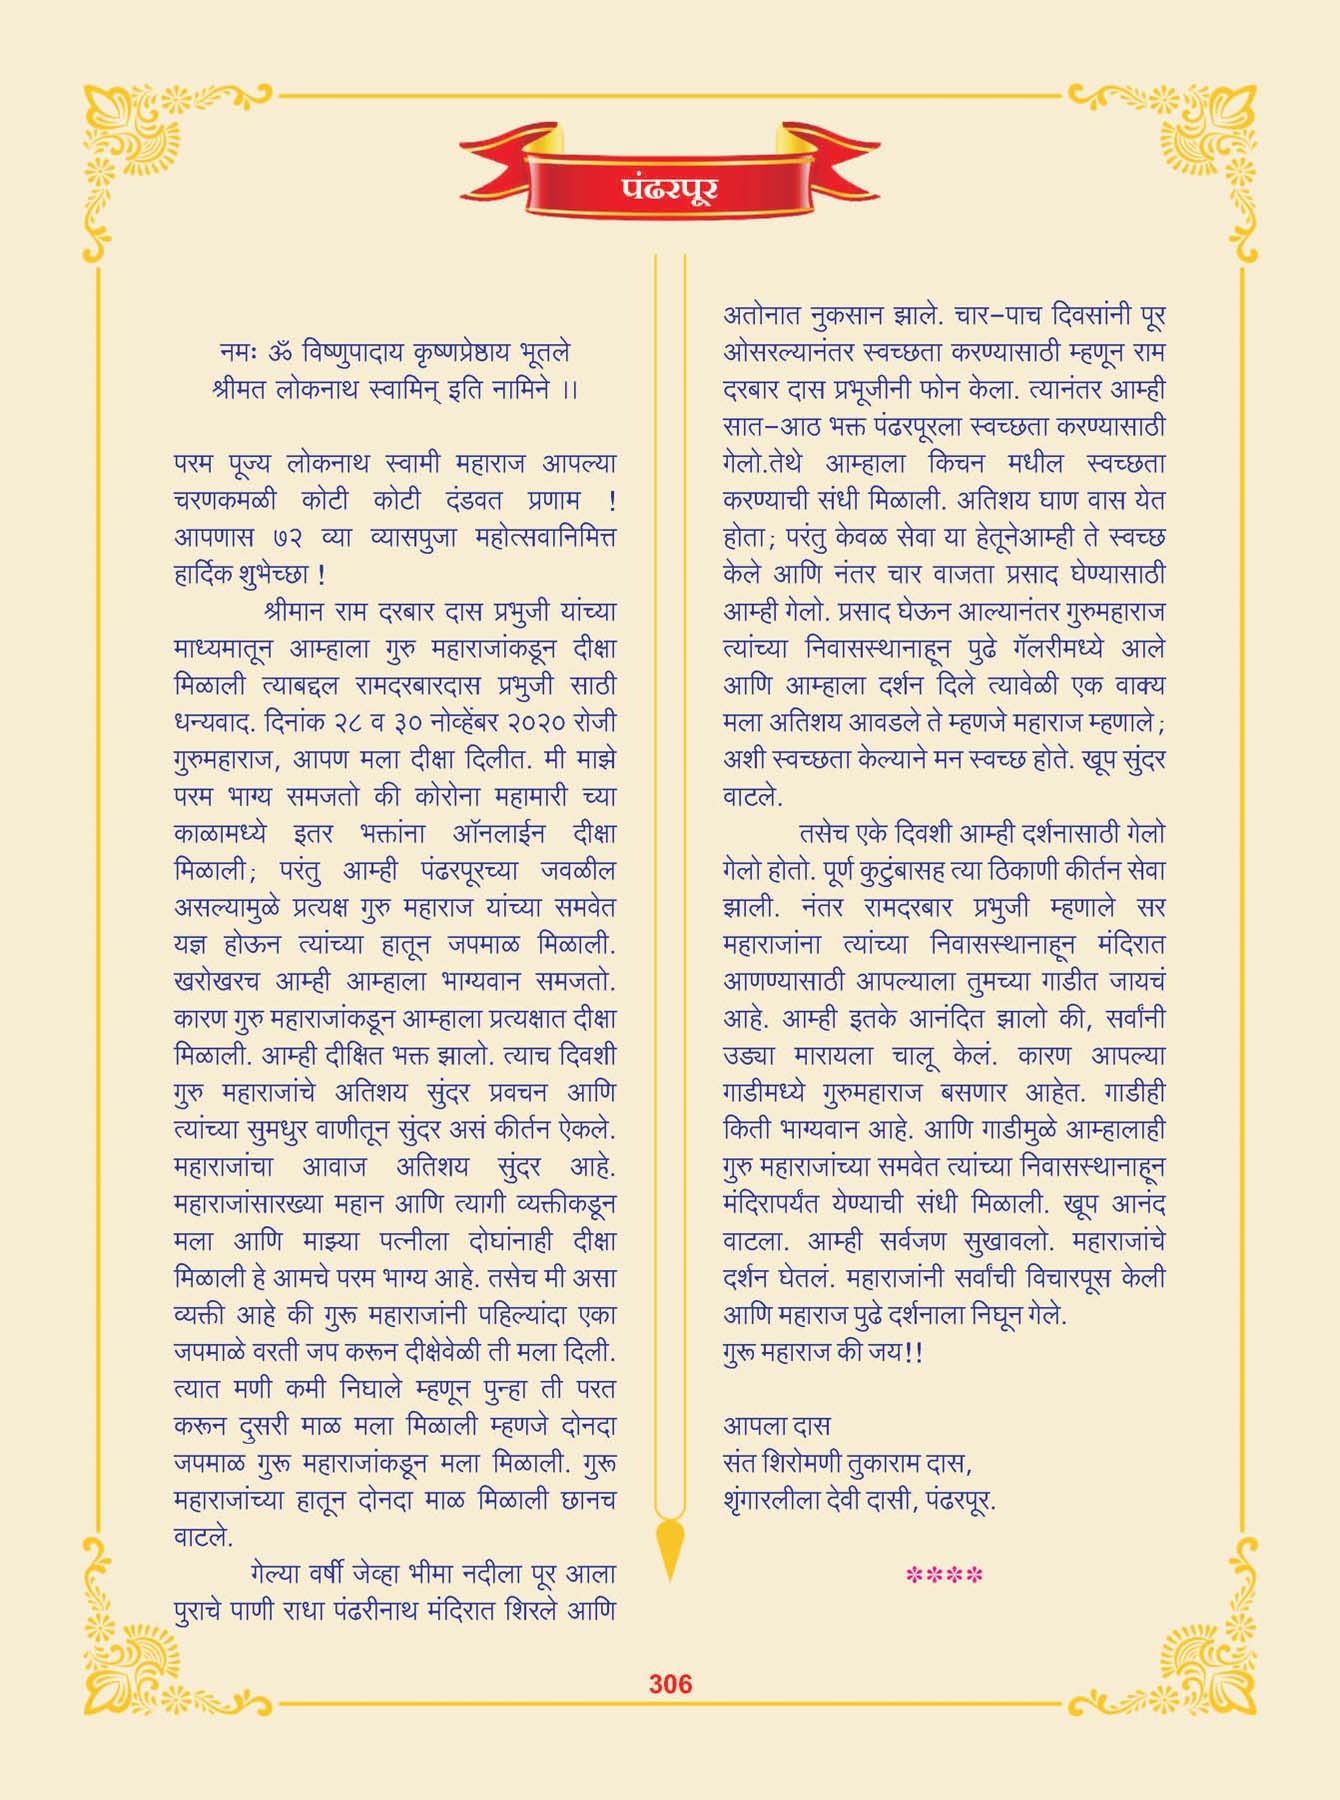 पंढरपूर
नमः ॐ विष्णुपादाय कृष्णप्रेष्ठाय भूतले
श्रीमत लोकनाथ स्वामिन् इति नामिने ।।
परम पूज्य लोकनाथ स्वामी महाराज आपल्या
चरणकमळी कोटी कोटी दंडवत प्रणाम !
आपणास ७२ व्या व्यासपुजा महोत्सवानिमित्त
हार्दिक शुभेच्छा !
श्रीमान राम दरबार दास प्रभुजी यांच्या
माध्यमातून आम्हाला गुरु महाराजांकडून दीक्षा
मिळाली त्याबद्दल रामदरबारदास प्रभुजी साठी
धन्यवाद. दिनांक २८ व ३० नोव्हेंबर २०२० रोजी
गुरुमहाराज, आपण मला दीक्षा दिलीत. मी माझे
परम भाग्य समजतो की कोरोना महामारी च्या
काळामध्ये इतर भक्तांना ऑनलाईन दीक्षा
मिळाली; परंतु आम्ही पंढरपूरच्या जवळील
असल्यामुळे प्रत्यक्ष गुरु महाराज यांच्या समवेत
यज्ञ होऊन त्यांच्या हातून जपमाळ मिळाली.
खरोखरच आम्ही आम्हाला भाग्यवान समजतो.
कारण गुरु महाराजांकडून आम्हाला प्रत्यक्षात दीक्षा
मिळाली. आम्ही दीक्षित भक्त झालो. त्याच दिवशी
गुरु महाराजांचे अतिशय सुंदर प्रवचन आणि
त्यांच्या सुमधुर वाणीतून सुंदर असं कीर्तन ऐकले.
महाराजांचा आवाज अतिशय सुंदर आहे.
महाराजांसारख्या महान आणि त्यागी व्यक्तीकडून
मला आणि माझ्या पत्नीला दोघांनाही दीक्षा
मिळाली हे आमचे परम भाग्य आहे. तसेच मी असा
व्यक्ती आहे की गुरू महाराजांनी पहिल्यांदा एका
जपमाळे वरती जप करून दीक्षेवेळी ती मला दिली.
त्यात मणी कमी निघाले म्हणून पुन्हा ती परत
करून दुसरी माळ मला मिळाली म्हणजे दोनदा
जपमाळ गुरू महाराजांकडून मला मिळाली. गुरू
महाराजांच्या हातून दोनदा माळ मिळाली छानच
वाटले.
गेल्या वर्षी जेव्हा भीमा नदीला पूर आला
पुराचे पाणी राधा पंढरीनाथ मंदिरात शिरले आणि
अतोनात नुकसान झाले. चार-पाच दिवसांनी पूर
ओसरल्यानंतर स्वच्छता करण्यासाठी म्हणून राम
दरबार दास प्रभूजीनी फोन केला. त्यानंतर आम्ही
सात-आठ भक्त पंढरपूरला स्वच्छता करण्यासाठी
गेलो.तेथे आम्हाला किचन मधील स्वच्छता
करण्याची संधी मिळाली. अतिशय घाण वास येत
होता; परंतु केवळ सेवा या हेतूनेआम्ही ते स्वच्छ
केले आणि नंतर चार वाजता प्रसाद घेण्यासाठी
आम्ही गेलो. प्रसाद घेऊन आल्यानंतर गुरुमहाराज
त्यांच्या निवासस्थानाहून पुढे गॅलरीमध्ये आले
आणि आम्हाला दर्शन दिले त्यावेळी एक वाक्य
मला अतिशय आवडले ते म्हणजे महाराज म्हणाले;
अशी स्वच्छता केल्याने मन स्वच्छ होते. खूप सुंदर
वाटले.
तसेच एके दिवशी आम्ही दर्शनासाठी गेलो
गेलो होतो. पूर्ण कुटुंबासह त्या ठिकाणी कीर्तन सेवा
झाली. नंतर रामदरबार प्रभुजी म्हणाले सर
महाराजांना त्यांच्या निवासस्थानाहून मंदिरात
आणण्यासाठी आपल्याला तुमच्या गाडीत जायचं
आहे. आम्ही इतके आनंदित झालो की, सर्वांनी
उड्या मारायला चालू केलं. कारण आपल्या
गाडीमध्ये गुरुमहाराज बसणार आहेत. गाडीही
किती भाग्यवान आहे. आणि गाडीमुळे आम्हालाही
गुरु महाराजांच्या समवेत त्यांच्या निवासस्थानाहून
मंदिरापर्यंत येण्याची संधी मिळाली. खूप आनंद
वाटला. आम्ही सर्वजण सुखावलो. महाराजांचे
दर्शन घेतलं. महाराजांनी सर्वांची विचारपूस केली
आणि महाराज पुढे दर्शनाला निघून गेले.
गुरू महाराज की जय!!
आपला दास
संत शिरोमणी तुकाराम दास,
शृंगारलीला देवी दासी, पंढरपूर.
****
306